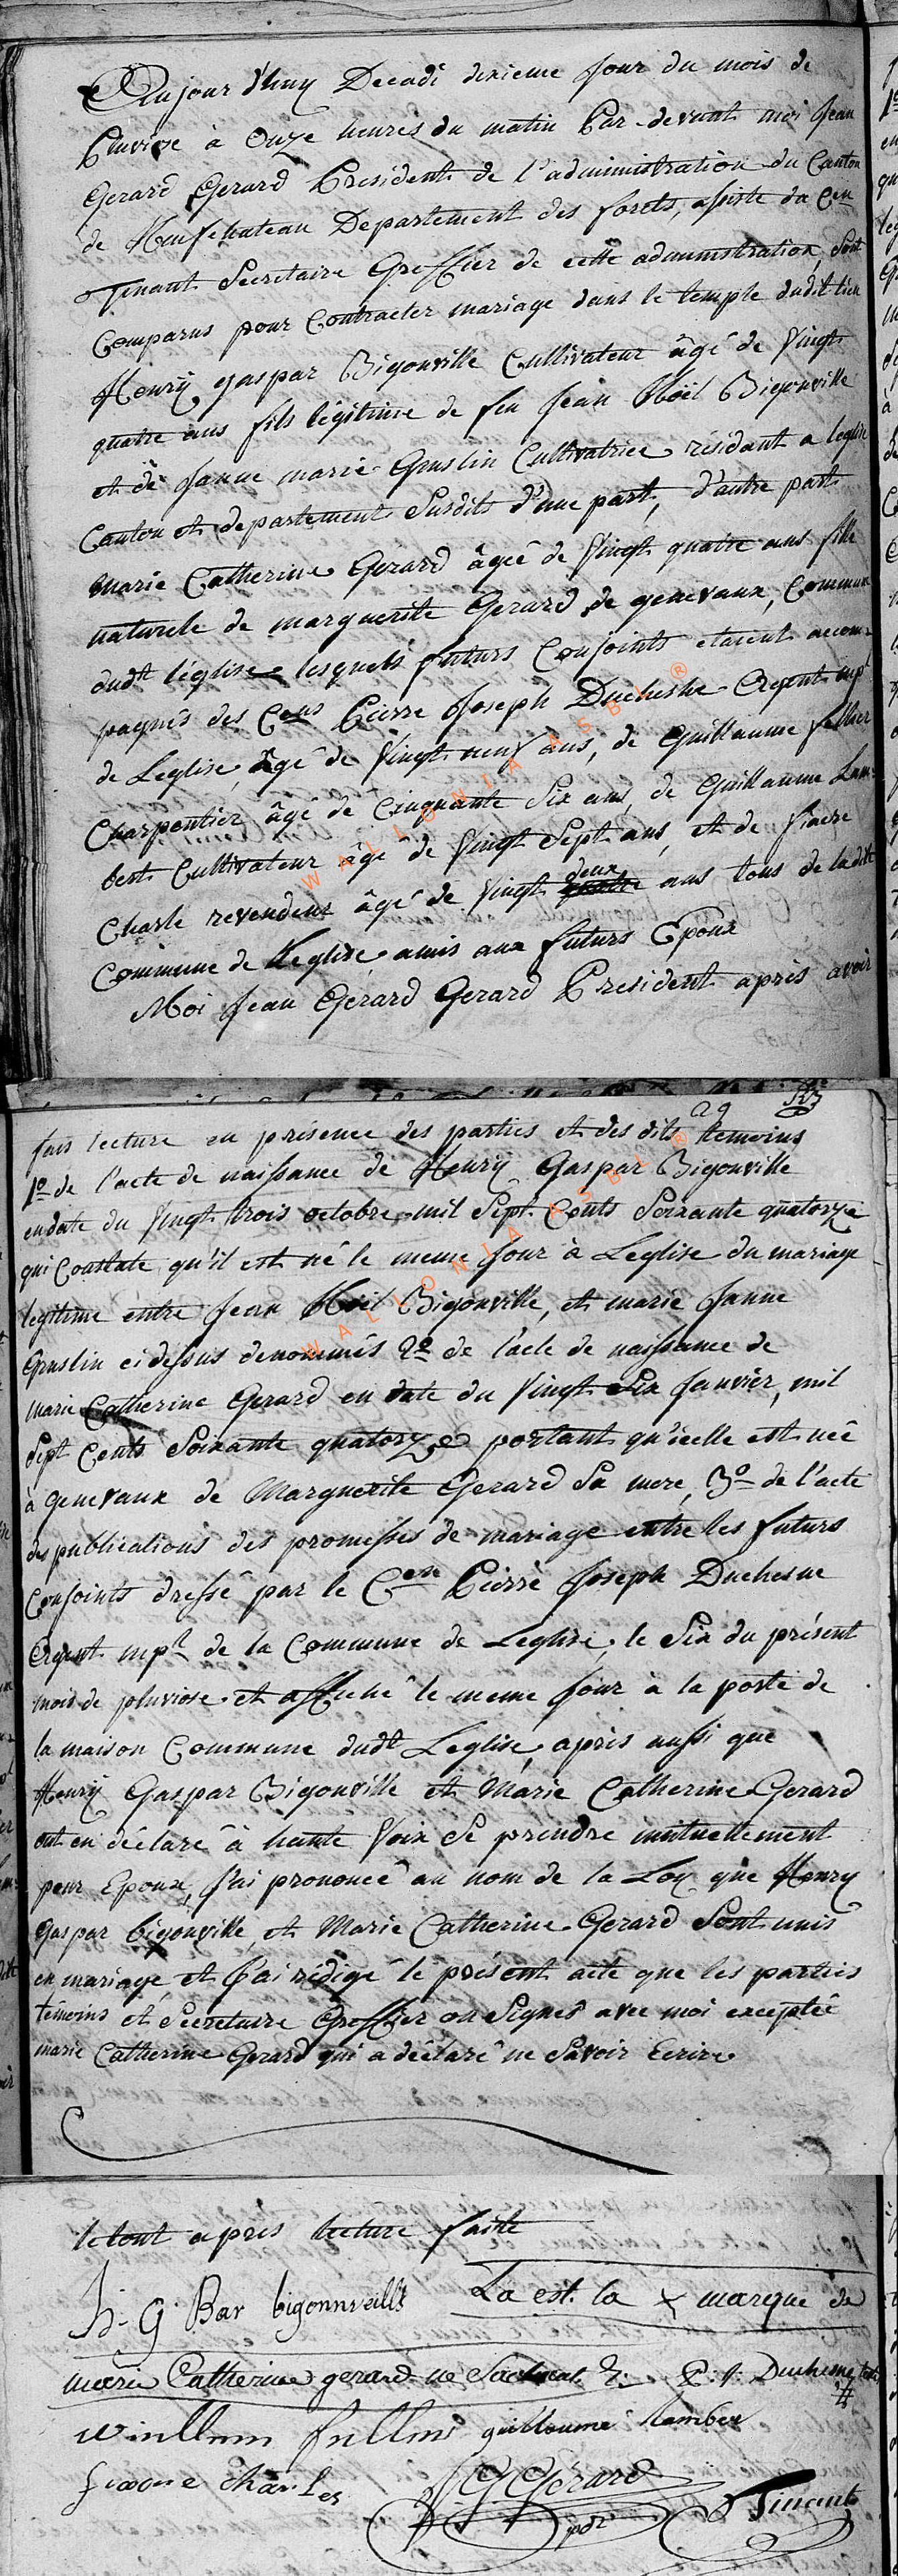 Aujourd'huy Decadi dixieme jour du mois de
Pluviose à Onze heures du matin Par-devant moi Jean
Gerard Gerard President de l'administration du Canton
de Neufchateau Departement des forets, assiste du Cen
Tinant Secretaire Greffier de cette administration, Sont
Comparus pour Contracter mariage dans le temple dudit lieu
Henry gaspar Bigonville Cultivateur âgé de Vingt
quatre ans fils légitime de feu Jean Noël Bigonville
et de Janne marie Gruslin Cultivatrice résidant a leglise
Canton et departement Susdits d'une part, d'autre part
Marie Catherine Gerard âgée de Vingt quatre ans fille
naturele de marguerite Gerard de genevaux, Commune
dudt léglise lesquels futurs Conjoints etaient accom-
pagnés des Cens Pierre Joseph Duchesne Agent mpl
de Leglise, âgé de Vingt neuf ans, de Guillaume fellier
Charpentier âgé de Cinquante Six ans, de Guillaume Lam-
bert Cultivateur âgé de Vingt Sept ans, et de fiacre
Charle revendeur âgé de Vingt deux ans tous de ladite
Commune de Leglise, amis aux futurs Epoux
Moi Jean Gerard Gerard President après avoir
fais lecture en présence des parties et des dits temoins
1o de l'acte de naissance de Henry Gaspar Bigonville
endate du Vingt trois octobre mil Sept Cents Soixante quatorze
qui Constate qu'il est né le meme Jour à Leglise du mariage
legitime entre Jean Noël Bigonville, et marie Janne
Gruslin cidessus denommés 2o de l'acte de naissance de
marie Catherine Gerard en date du Vingt Six Janvier, mil
Sept Cents Soixante quatorze portant qu'icelle est née
à genevaux de Marguerite Gerard Sa mere, 3o de l'acte
des publications des promesses de mariage entre les futurs
Conjoints dressé par le Cen Pierre Joseph Duchesne
Agent mpl de la Commune de Leglise, le Six du présent
mois de pluviose et affiché le meme jour à la porte de
la maison Commune dudt Leglise, après aussi que
Henry Gaspar Bigonville et Marie Catherine Gerard
ont en déclaré à haute Voix Se prendre mutuellement
pour Epoux, J'ai prononcé au nom de la Loy que Henry
Gaspar bigonville, et Marie Catherine Gerard Sont unis
en mariage, et J'ai rédigé le présent acte que les parties
témoins et Secretaire Greffier on Signés avec moi exceptée
marie Catherine Gerard qui a déclaré ne Savoir Ecrire
le tout après lecture faite
h. G Bar bigonnveills La est. la x marque de
marie Catherine gerard P: J: Duchesne
guilloume lamber
Charles
JG Gerard
pdt Tinant
WALLONIA ASBL ®
WALLONIA ASBL ®